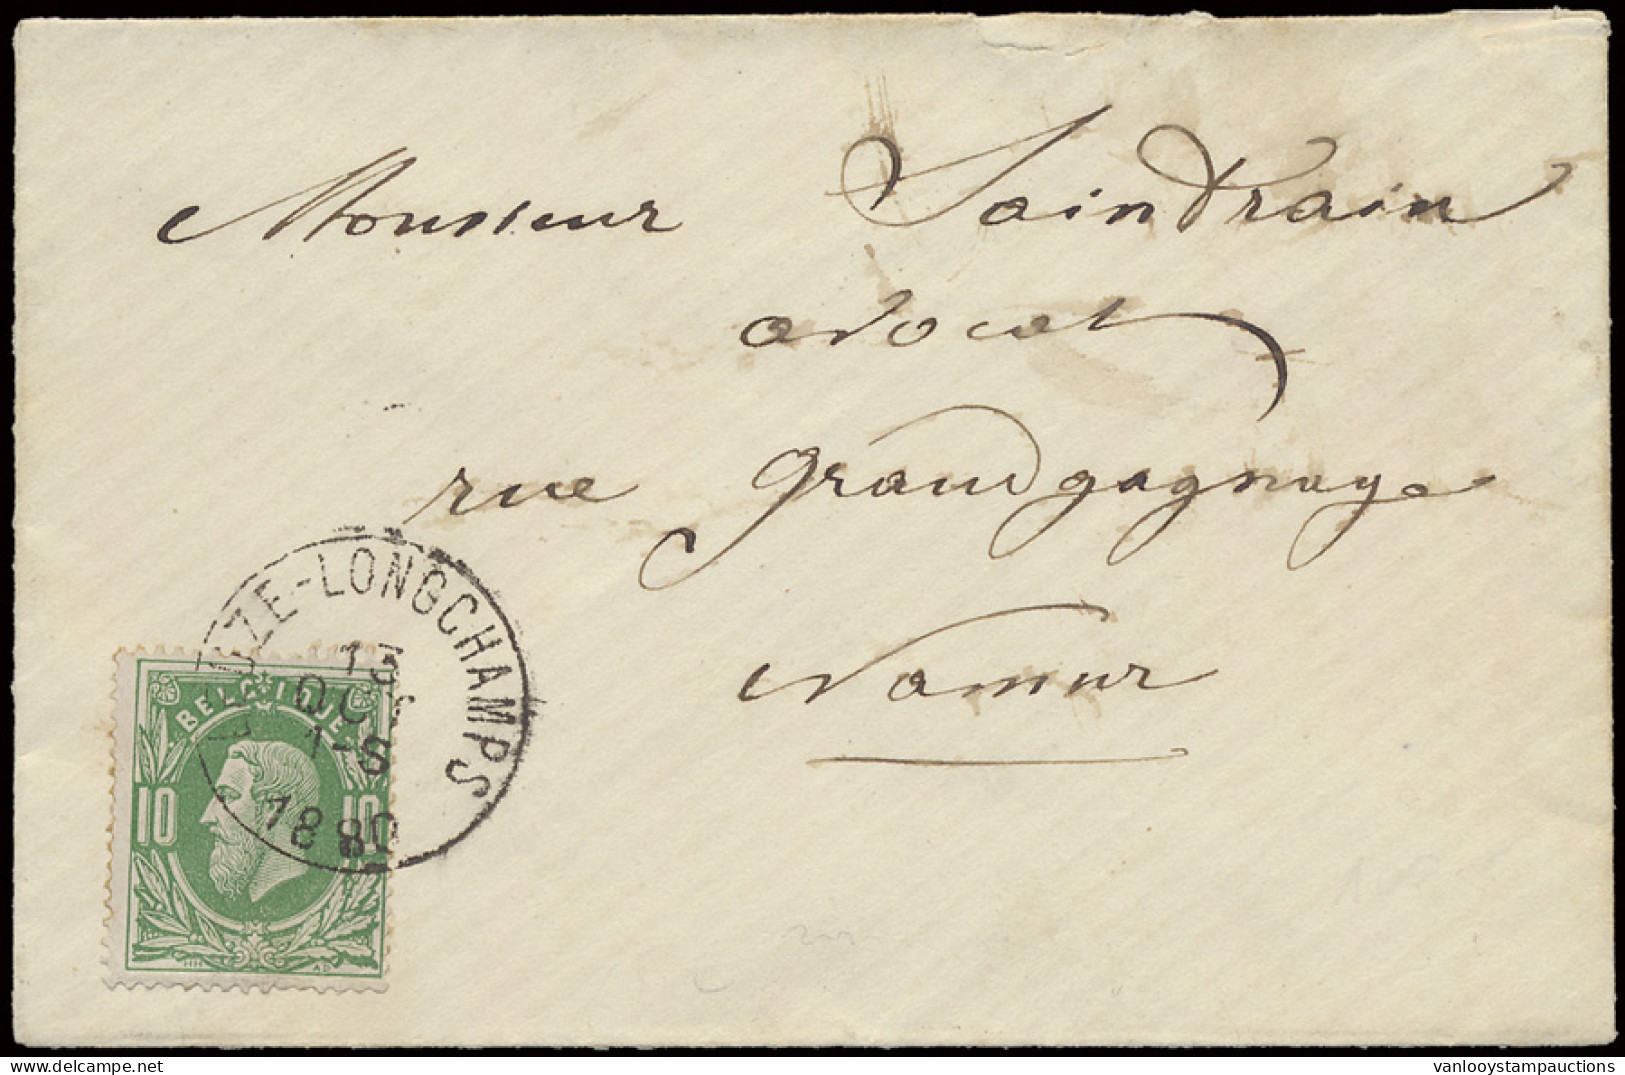 Monsieur Saintrain
avocat
rue grandgagnage
Namur
LEUZE-LONGCHAMPS
13
OCT
1-S
1880
BELGIQUE
10 10
HH AD
vanlooystampauctions